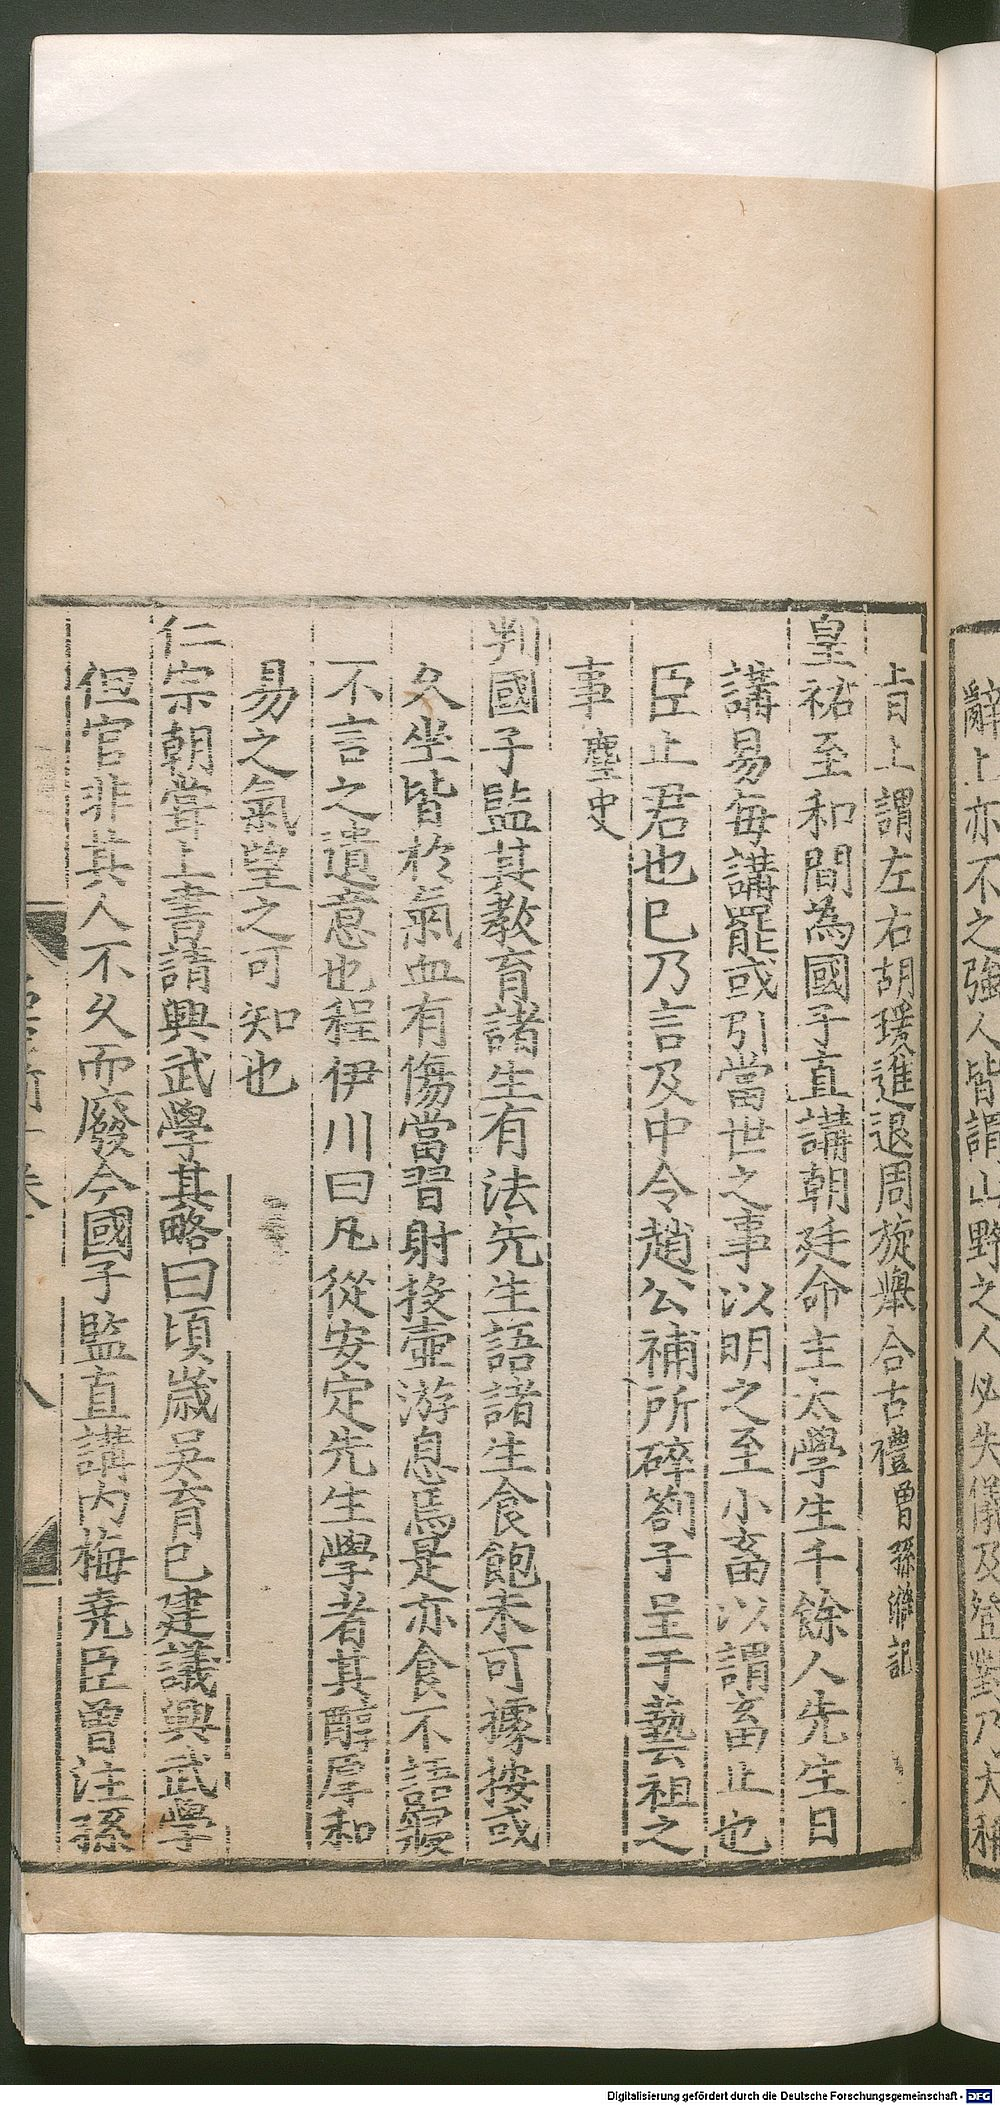 辭上亦不之強人皆謂山野之人必失儀及登對乃大稱
旨上謂左右胡瑗進退周旋舉合古禮曾孫滌記
皇祐至和間為國子直講朝廷命主太學生千餘人先生日
講易每講罷或引當世之事以明之至小畜以謂畜止也
臣止君也已乃言及中令趙公補所碎劄子呈于藝祖之
事麈史
判國子監其教育諸生有法先生語諸生食飽未可據按或
久坐皆於氣血有傷當習射投壺游息焉是亦食不語寢
不言之遺意也程伊川曰凡從安定先生學者其醇厚和
易之氣望之可知也
仁宗朝嘗上書請興武學其略曰頃歲吳育已建議興武學
但官非其人不久而廢今國子監直講內梅堯臣曾注孫
八
Digitalisierung gefördert durch die Deutsche Forschungsgemeinschaft - DFG